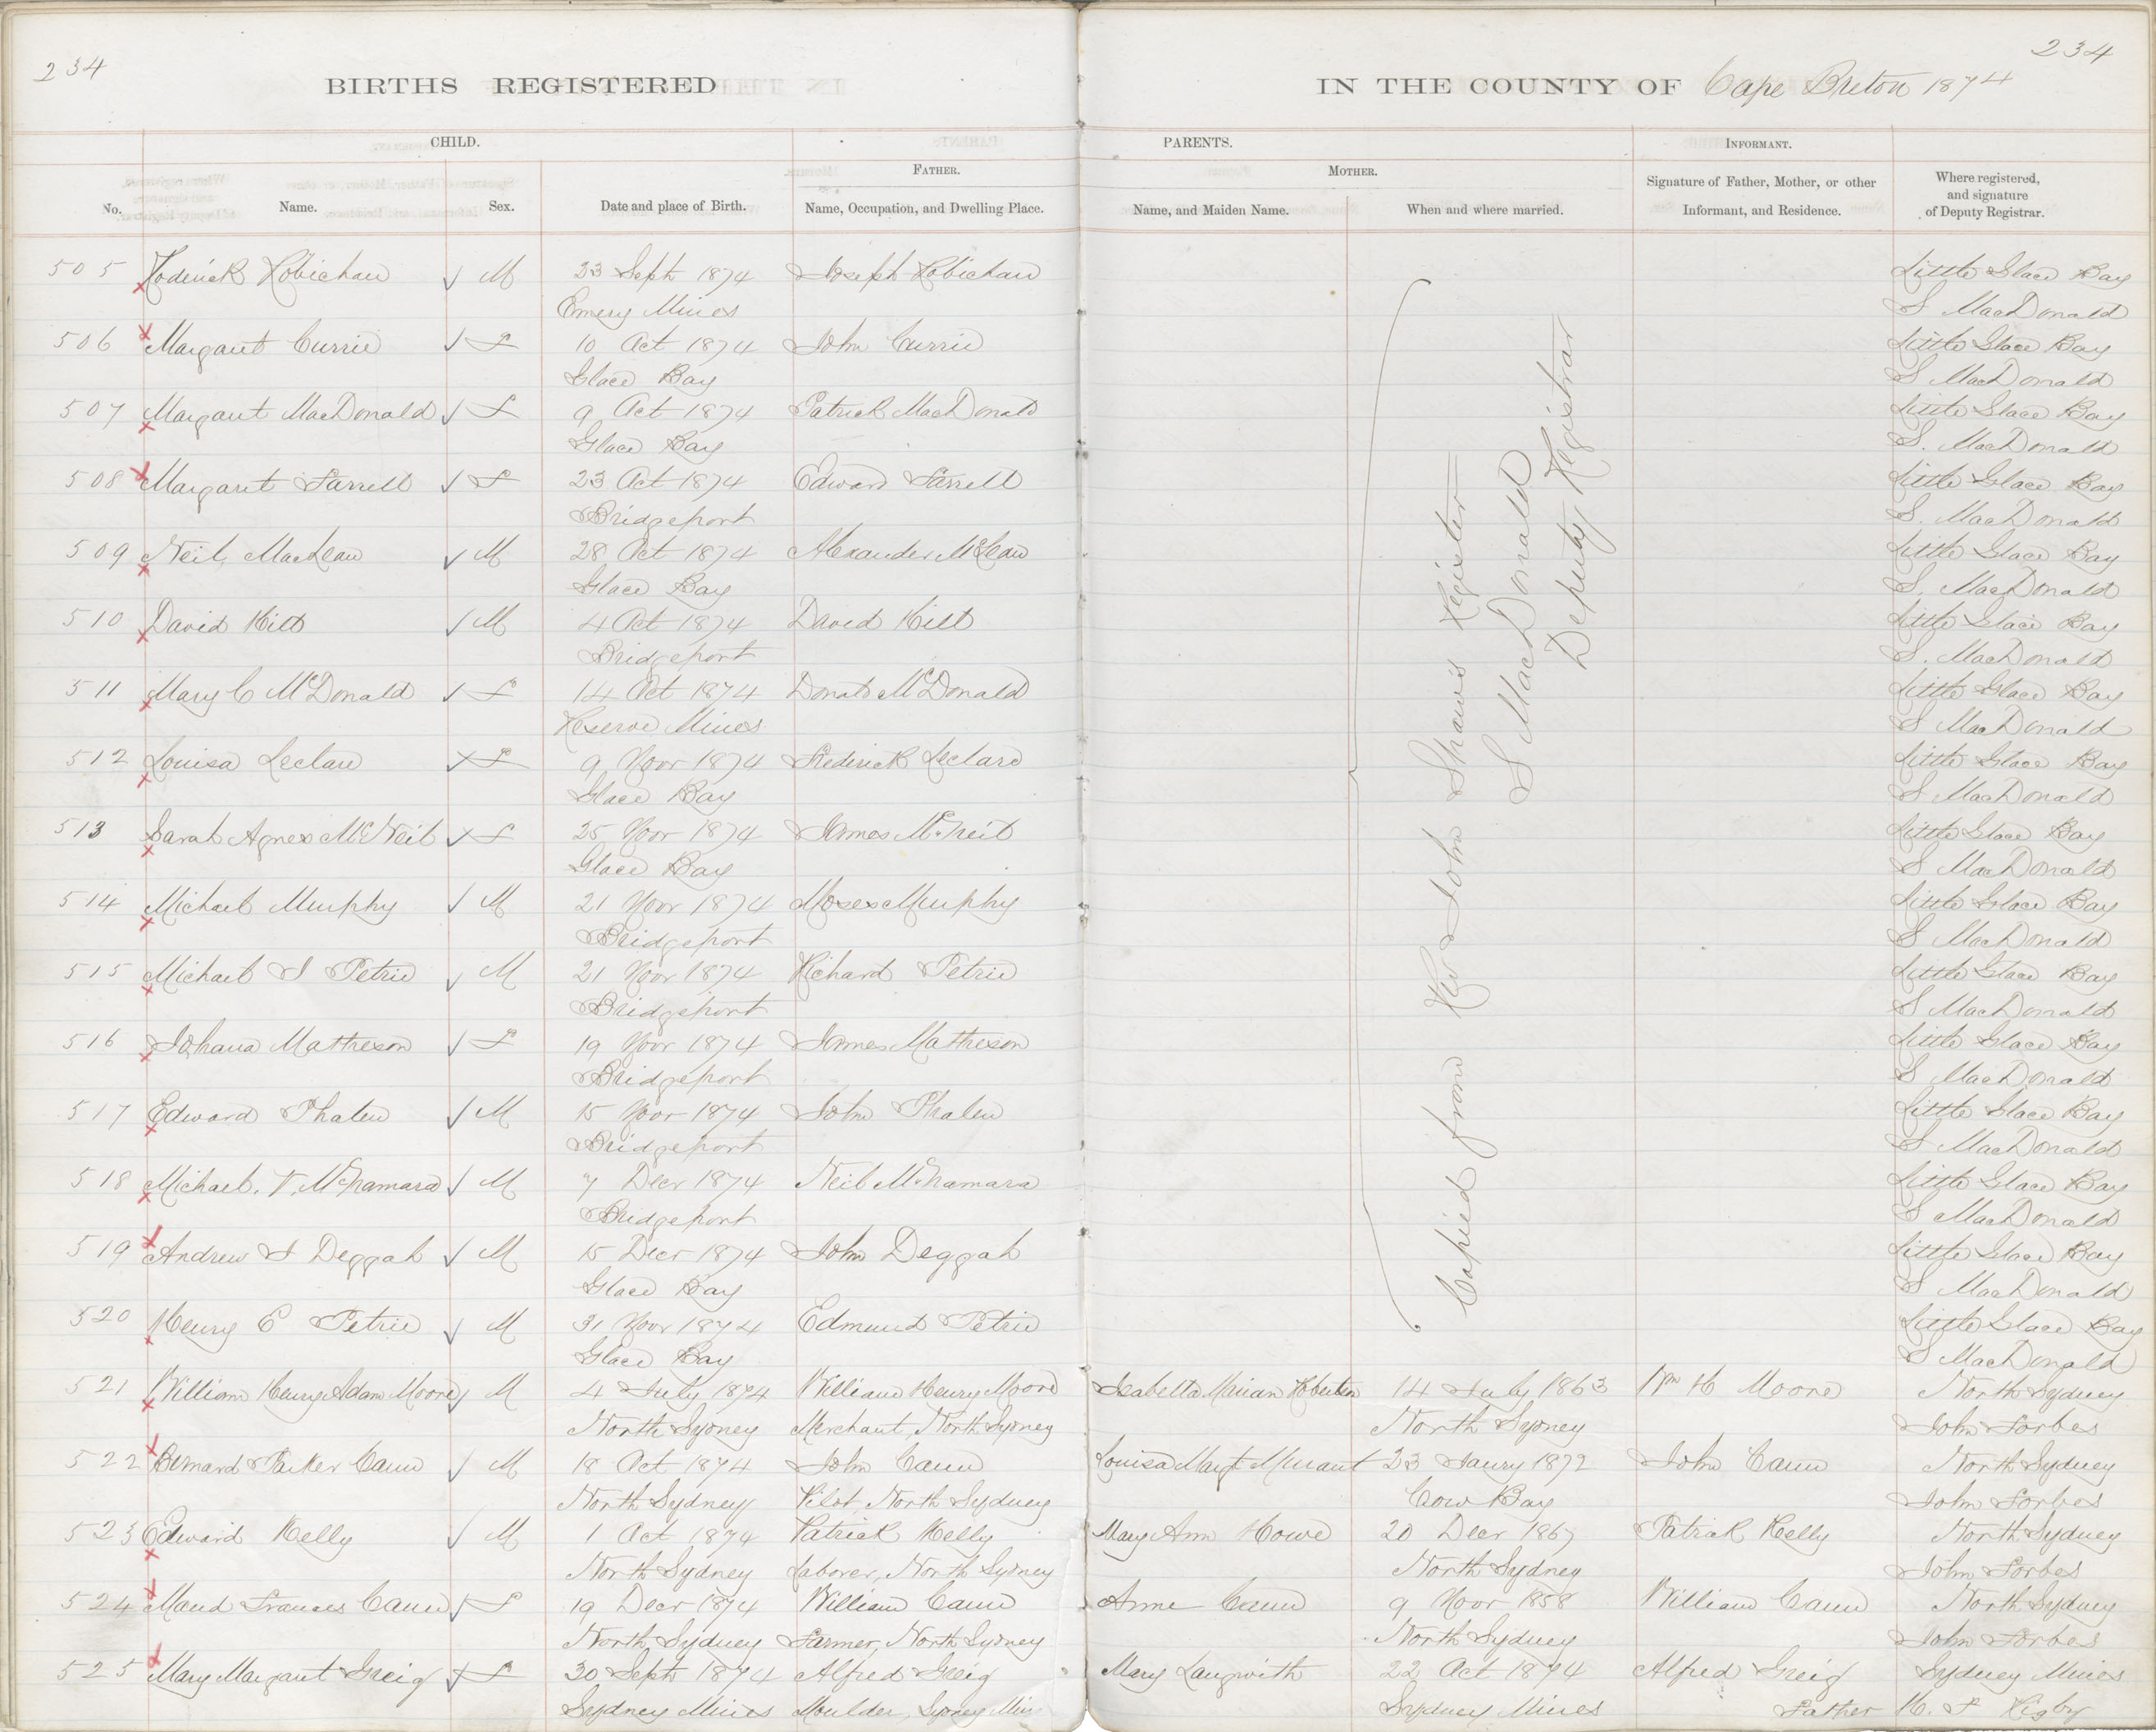 234
234
BIRTHS REGISTERED
IN THE COUNTY OF Cape Breton 1874
CHILD.
PARENTS.
INFORMANT.
FATHER.
MOTHER.
No.
Name.
Sex.
Date and place of Birth.
Name, Occupation, and Dwelling Place.
Name, and Maiden Name.
When and where married.
Signature of Father, Mother, or other
Informant, and Residence.
Where registered,
and signature
of Deputy Registrar.
505 Roderick Robichau M 23 Sept 1874 Joseph Robichau Little Glace Bay
Emery Mines S MacDonald
506 Margaret Currie F 10 Oct 1874 John Currie Little Glace Bay
Glace Bay S MacDonald
507 Margaret MacDonald F 9 Oct 1874 Patrick MacDonald Little Glace Bay
Glace Bay S. MacDonald
508 Margaret Farrell F 23 Oct 1874 Edward Farrell Little Glace Bay
Bridgeport S. MacDonald
509 Neil MacLean M 28 Oct 1874 Alexander McLean Little Glace Bay
Glace Bay S. MacDonald
510 David Hill M 4 Oct 1874 David Hill Little Glace Bay
Bridgeport S. MacDonald
511 Mary C McDonald F 14 Oct 1874 Donald McDonald Little Glace Bay
Reserve Mines S MacDonald
512 Louisa Leclare F 9 Novr 1874 Frederick Leclare Little Glace Bay
Glace Bay S MacDonald
513 Sarah Agnes McNeil F 25 Novr 1874 James McNeil Little Glace Bay
Glace Bay S MacDonald
514 Michael Murphy M 21 Novr 1874 Moses Murphy Little Glace Bay
Bridgeport S MacDonald
515 Michael J Petrie M 21 Novr 1874 Richard Petrie Little Glace Bay
Bridgeport S MacDonald
516 Johana Matheson F 19 Novr 1874 James Matheson Little Glace Bay
Bridgeport S MacDonald
517 Edward Phalen M 15 Novr 1874 John Phalen Little Glace Bay
Bridgeport S MacDonald
518 Michael. V. McNamara M 7 Decr 1874 Neil McNamara Little Glace Bay
Bridgeport S MacDonald
519 Andrew J Deggah M 15 Decr 1874 John Deggah Little Glace Bay
Glace Bay S MacDonald
520 Henry E Petrie M 31 Novr 1874 Edmund Petrie Little Glace Bay
Glace Bay S MacDonald
Copied from Rev John Shaws Register
S MacDonald
Deputy Registrar
521 William Henry Adam Moore M 4 July 1874 William Henry Moore Isabella Marian Robertson 14 July 1863 Wm H Moore North Sydney
North Sydney Merchant, North Sydney North Sydney John Forbes
522 Bernard Parker Cann M 18 Oct 1874 John Cann Louisa Margt 23 Janry 1872 John Cann North Sydney
North Sydney Pilot North Sydney Cow Bay John Forbes
523 Edward Kelly M 1 Oct 1874 Patrick Kelly Mary Ann Howe 20 Decr 1867 Patrick Kelly North Sydney
North Sydney Laborer, North Sydney North Sydney John Forbes
524 Maud Frances Cann F 19 Decr 1874 William Cann Anne Cann 9 Novr 1858 William Cann North Sydney
North Sydney Farmer, North Sydney North Sydney John Forbes
525 Mary Margaret Greig F 30 Sept 1874 Alfred Greig Mary Langwith 22 Oct 1874 Alfred Greig Sydney Mines
Sydney Mines Moulder, Sydney Mines Sydney Mines Father H. F Rigby